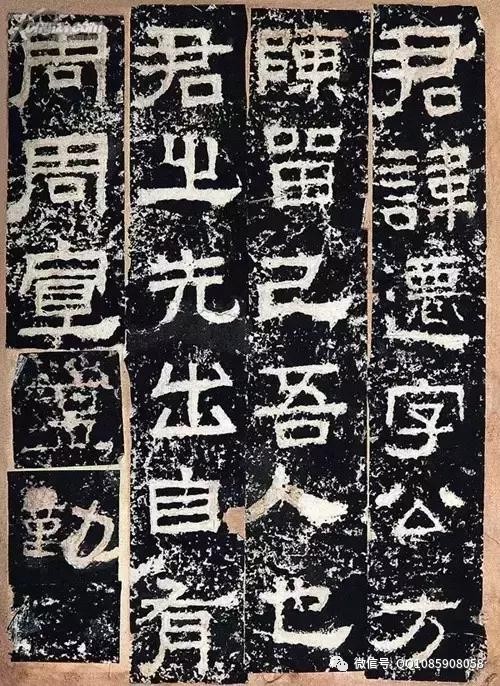 君諱遷字公方
陳留己吾人也
君之先出自有
周周宣王
微信号: QQ1085908058